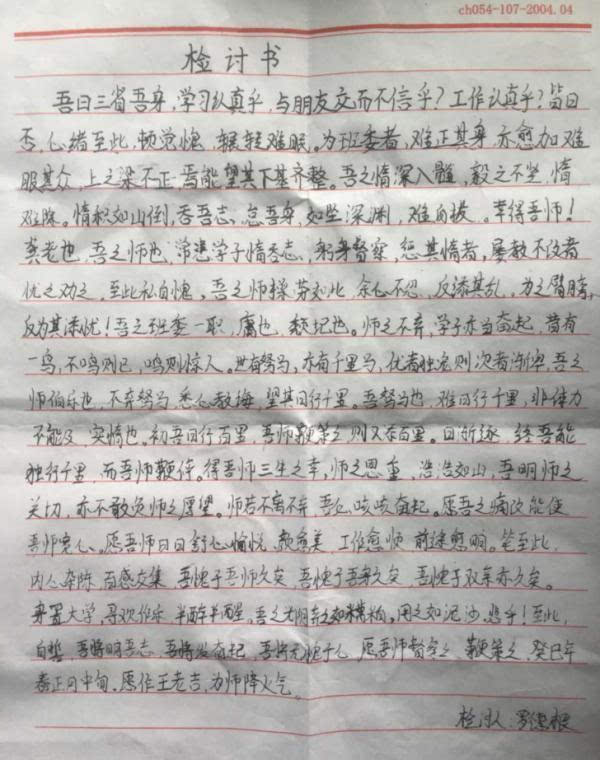 ch054-107-2004.04
检讨书
吾日三省吾身,学习认真乎,与朋友交而不信乎?工作认真乎?皆曰
否,心绪至此,顿觉愧,辗转难眠。为班委者,难正其身,亦愈加难
服其众,上之梁不正,焉能望其下基齐整。吾之惰深入髓,毅之不坚,惰
难除。惰积如山倒,吞吾志、怠吾身,如坐深渊,难自拔。幸得吾师!
龚老也,吾之师也,常悲学子惰吞志,躬身督察,惩其惰者,屡教不改者
忧之劝之,至此私自愧。吾之师操劳如此,余心不忍,反添其乱,为之臂膀,
反为其添忧!吾之班委一职,腐也,颓圮也。师之不弃,学子亦当奋起,昔有
一鸟,不鸣则已,鸣则惊人。世有驽马,亦有千里马,优者独宠则次者渐卑,吾之
师伯乐也,不弃驽马,悉心教诲,望其日行千里。吾驽马也,难日行千里,非体力
不能及,实惰也。初吾日行百里,吾师鞭策之则又添百里。日渐逐,终吾能
独行千里,而吾师鞭侍。得吾师三生之幸,师之恩重,浩浩如山,吾明师之
关切,亦不敢负师之厚望。师若不离不弃,吾必咬咬奋起。愿吾之痛改能使
吾师宽心。愿吾师日日舒心愉悦,颜愈美,工作愈顺,前途愈明。笔至此,
内心杂陈,百感交集,吾愧于吾师久矣,吾愧于吾身久矣,吾愧于双亲亦久矣。
身置大学,寻欢作乐,半醉半醒,吾之光阴弃之如糟粕,用之如泥沙,悲乎!至此,
自誓,吾将明吾志,吾将发奋起,吾将无愧于心,愿吾师督空之,鞭策之,癸巳年
春正月中旬,愿作王老吉,为师降火气。
检讨人:罗德根